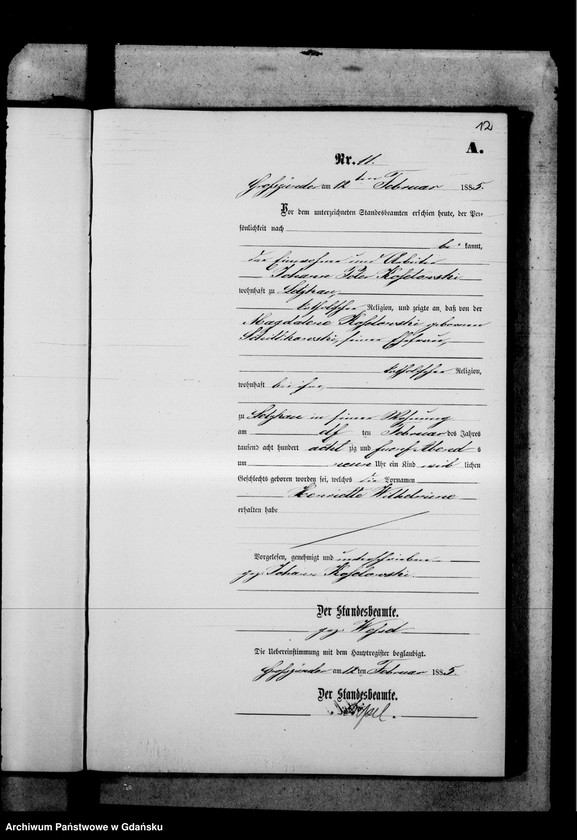 12
A.
Nr. 11.
am 12 ten Februar 1885.
Vor dem unterzeichneten Standesbeamten erschien heute, der Per-
sönlichkeit nach
be kannt,
der Einwohner und Arbeiter
Johann
wohnhaft zu
katholischer Religion, und zeigte an, daß von der
Magdalena geborenen
seiner Ehefrau,
katholischer Religion,
wohnhaft bei ihm,
zu in seiner Wohnung
am elf ten Februar des Jahres
tausend acht hundert acht zig und fuenf Abend s
um neun Uhr ein Kind weib lichen
Geschlechts geboren worden sei, welches die Vornamen
Henriette Wilhelmine
erhalten habe
Vorgelesen, genehmigt und unterschrieben
gez. Johann
Der Standesbeamte.
gez.
Die Uebereinstimmung mit dem Hauptregister beglaubigt.
am 12 ten Februar 1885.
Der Standesbeamte.
Archiwum Państwowe w Gdańsku